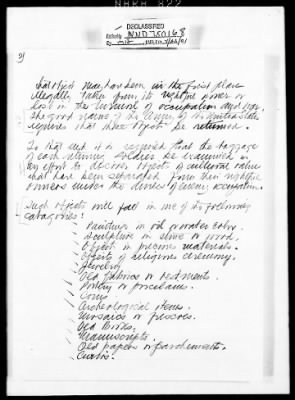 DECLASSIFIED
Authority NND 750168
3)
that object may have been in the first place
illegally taken from its rightful owner or
lost in the turmoil of occupation and
The good name of the Army, of the United States
requires that these objects be returned.
To that end it is required that the baggage
of each returning soldier be examined in
an effort to discover objects of cultural value
that have been separated from their rightful
owners under the of enemy occupation.
Such objects will fall in one of the following
categories:
Paintings in oil or water color.
Sculpture in stone or wood.
Objects in precious materials.
Objects of religious ceremony.
Jewelry
Old fabrics or vestments.
Pottery or porcelains.
Coins
Archeological items.
Mosaics or frescoes.
Old Books.
Manuscripts.
Old papers or parchments.
Curios.